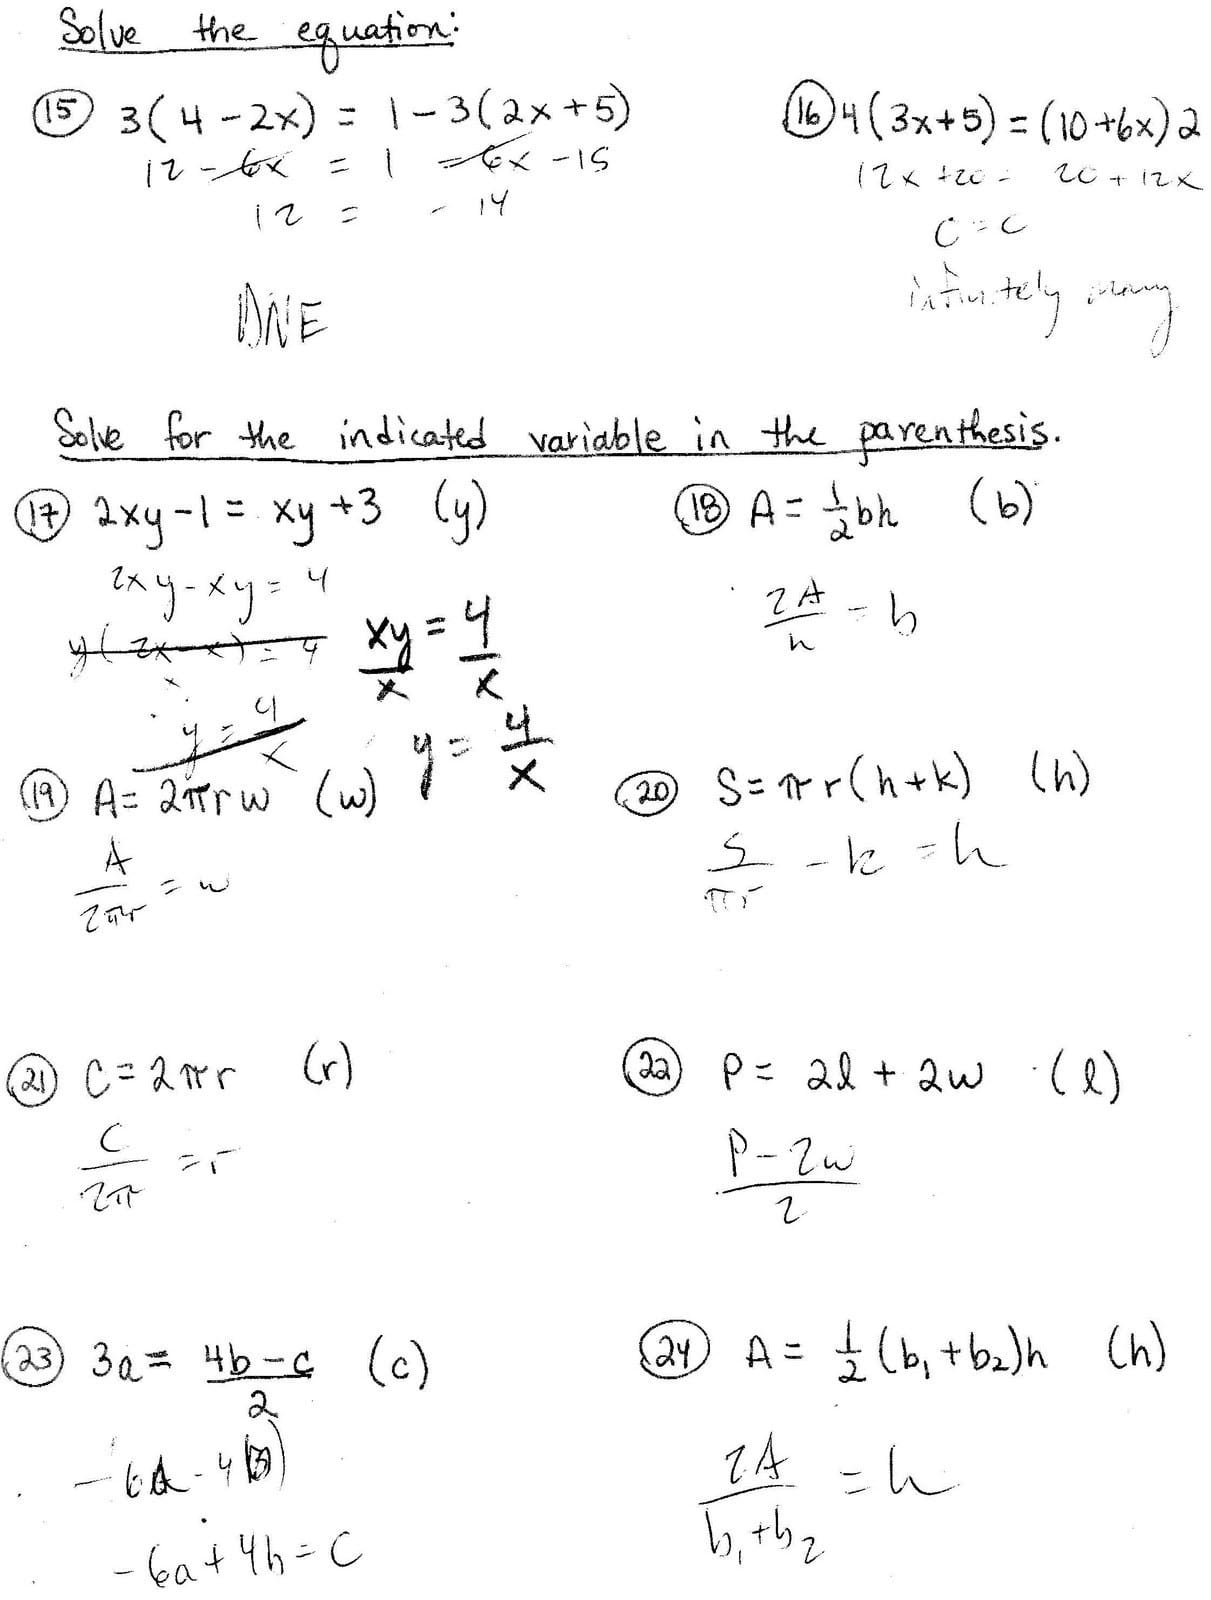 Solve the equation:
⑮ 3(4-2x) = 1-3(2x+5)
12-6x = 1 -6x -15
12 = -14
DNE
⑯ 4(3x+5) = (10+6x)2
12x +20 = 20 + 12x
C = C
infinitely many
Solve for the indicated variable in the parenthesis.
⑰ 2xy-1 = xy+3 (y)
2xy-xy = 4
y(2x-x) = 4
y = 4/x
xy/x = 4/x
y = 4/x
⑱ A = 1/2 bh (b)
2A/h = b
⑲ A = 2πrw (w)
A/2πr = w
⑳ S = πr(h+k) (h)
S/πr - k = h
㉑ C = 2πr (r)
C/2π = r
㉒ P = 2l + 2w (l)
P-2w/2
㉓ 3a = 4b-c/2 (c)
-6a+4b = c
㉔ A = 1/2 (b₁+b₂)h (h)
2A/b₁+b₂ = h